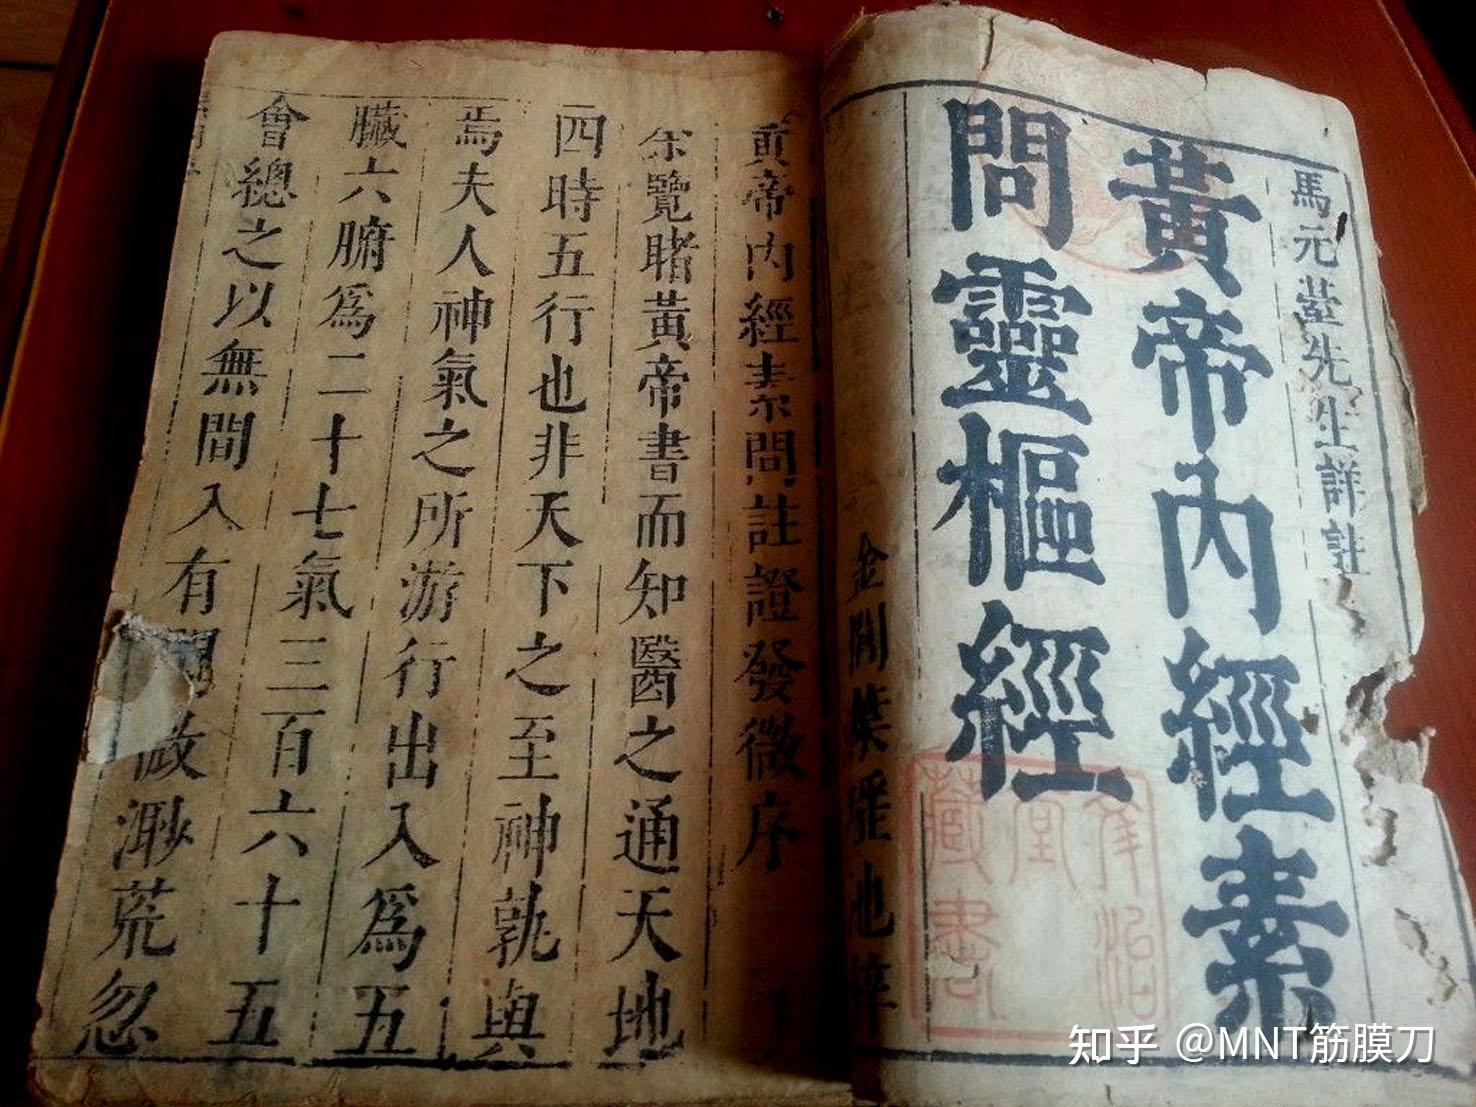 馬元臺先生詳註
黃帝內經素
問靈樞經
金閶葉瑤池梓
黃帝內經素問註證發微序
余覽睹黃帝書而知醫之通天地
四時五行也非天下之至神孰與
焉夫人神氣之所游行出入為五
臟六腑為二十七氣三百六十五
會總之以無間入有間故渺荒忽
藏書
知乎 @MNT筋膜刀